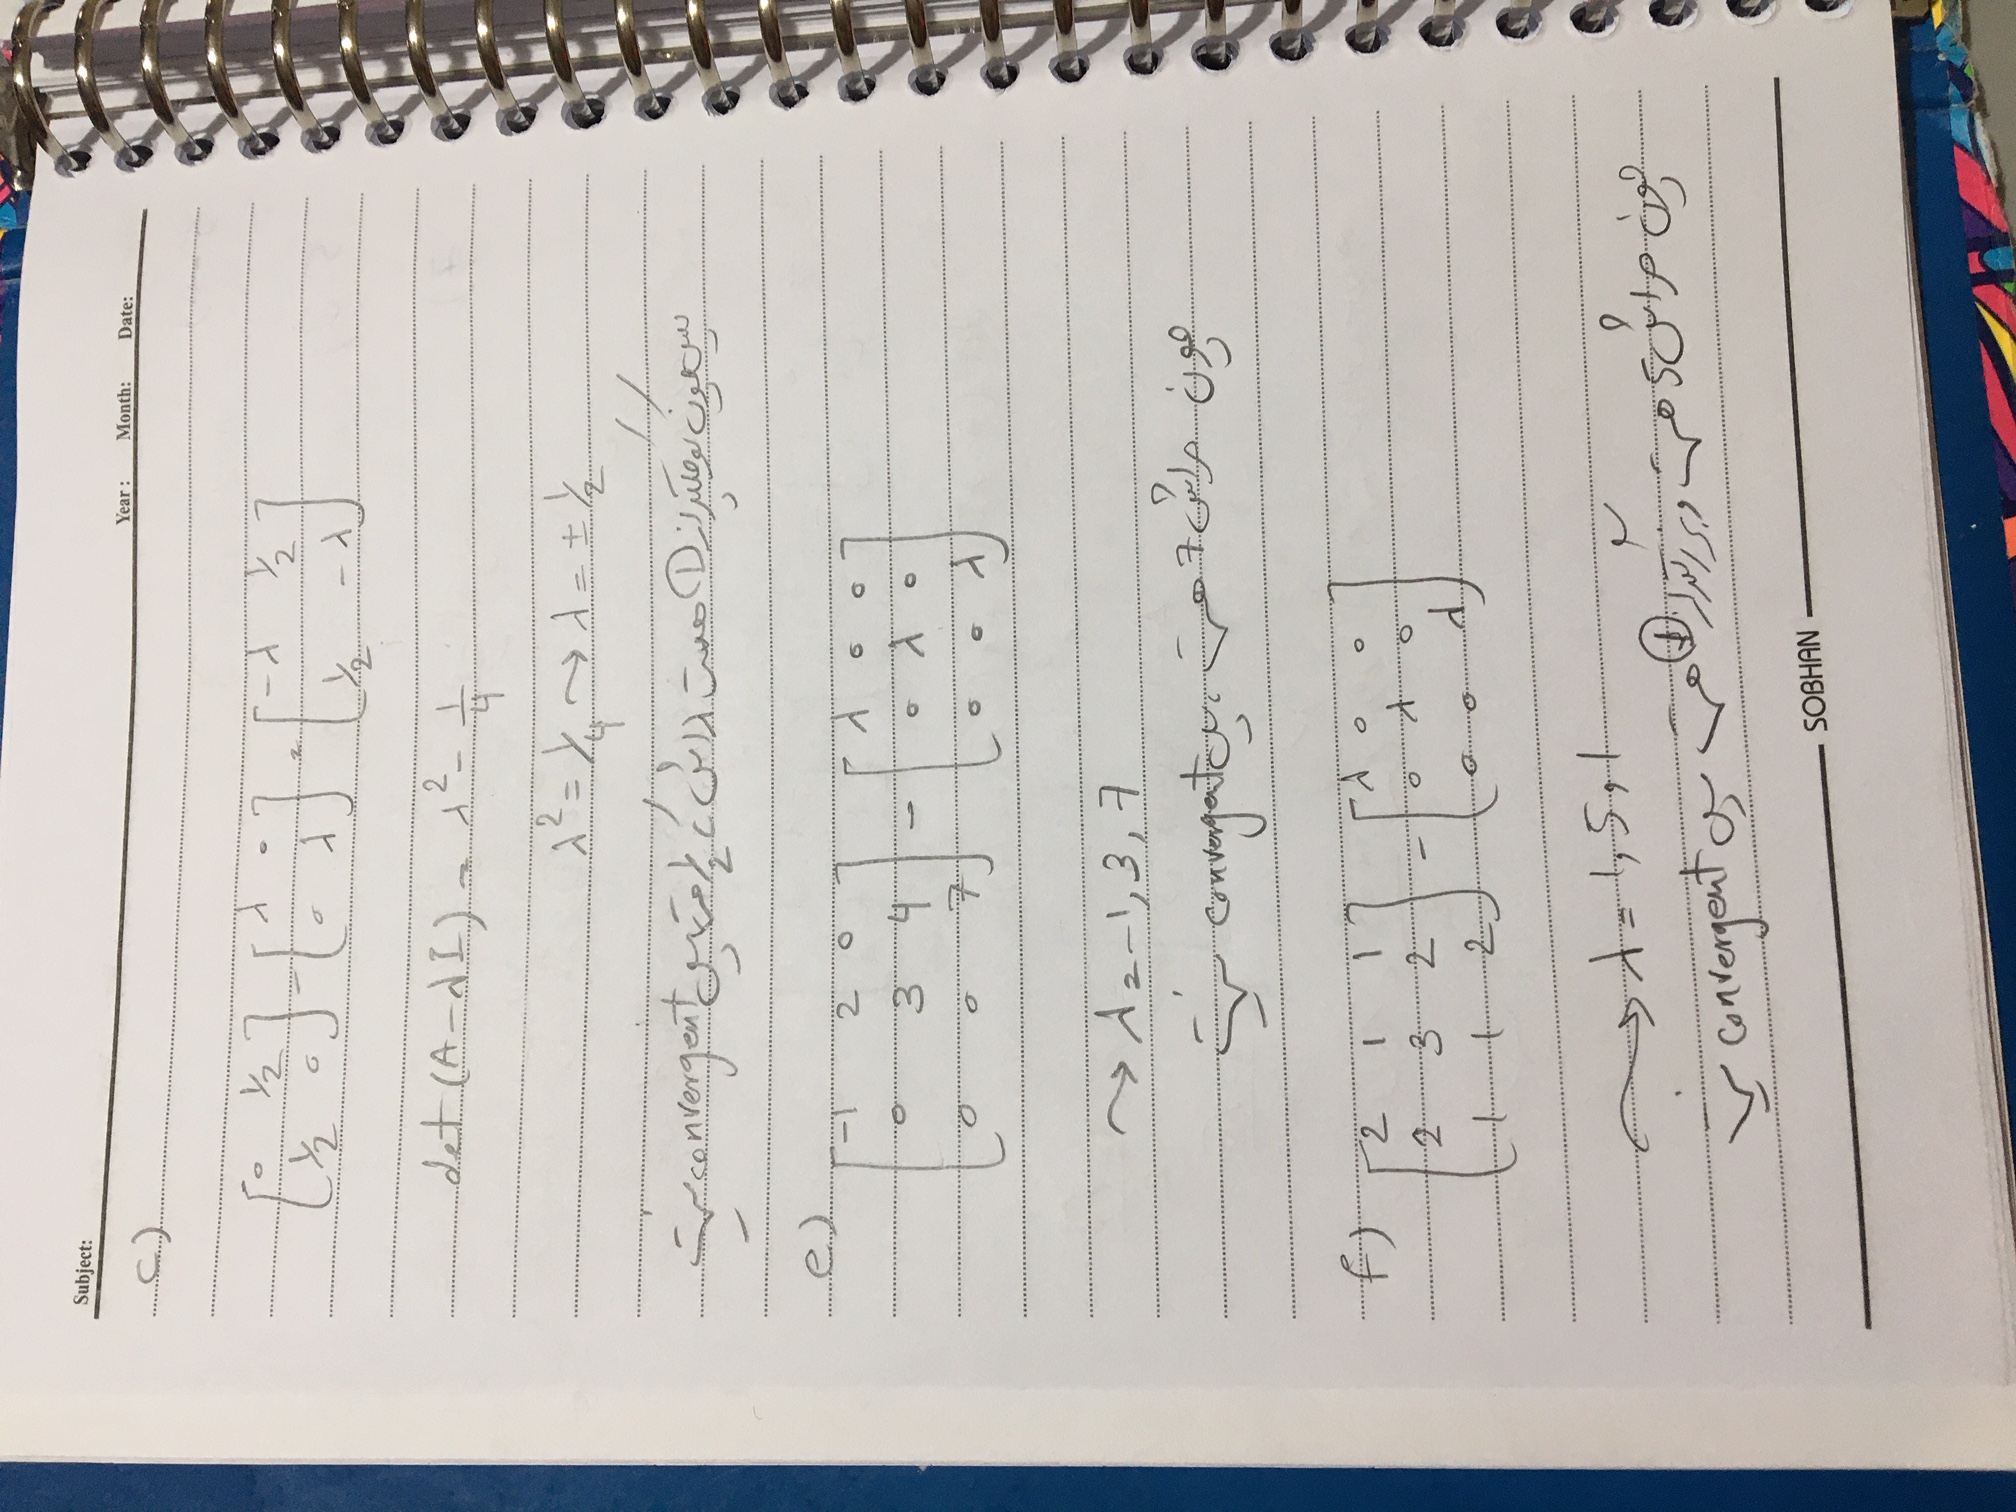 Subject:
Year : Month: Date:
c)
[0 1/2
1/2 0] - [λ 0
0 λ] = [-λ 1/2
1/2 -λ]
det (A-λI) = λ² - 1/4
λ² = 1/4 → λ = ± 1/2
پس چون کوچکتر از 1 هست 1/2 پس convergent
e)
[-1 2 0
0 3 4
0 0 7] - [λ 0 0
0 λ 0
0 0 λ]
→ λ = -1, 3, 7
چون 7 هست، پس convergent نیست
f) [2 1 1
2 3 2
1 1 2] - [λ 0 0
0 λ 0
0 0 λ]
→ λ = 1, 5, 1
چون 5 هست و بزرگتر از 1 هست پس convergent نیست
SOBHAN